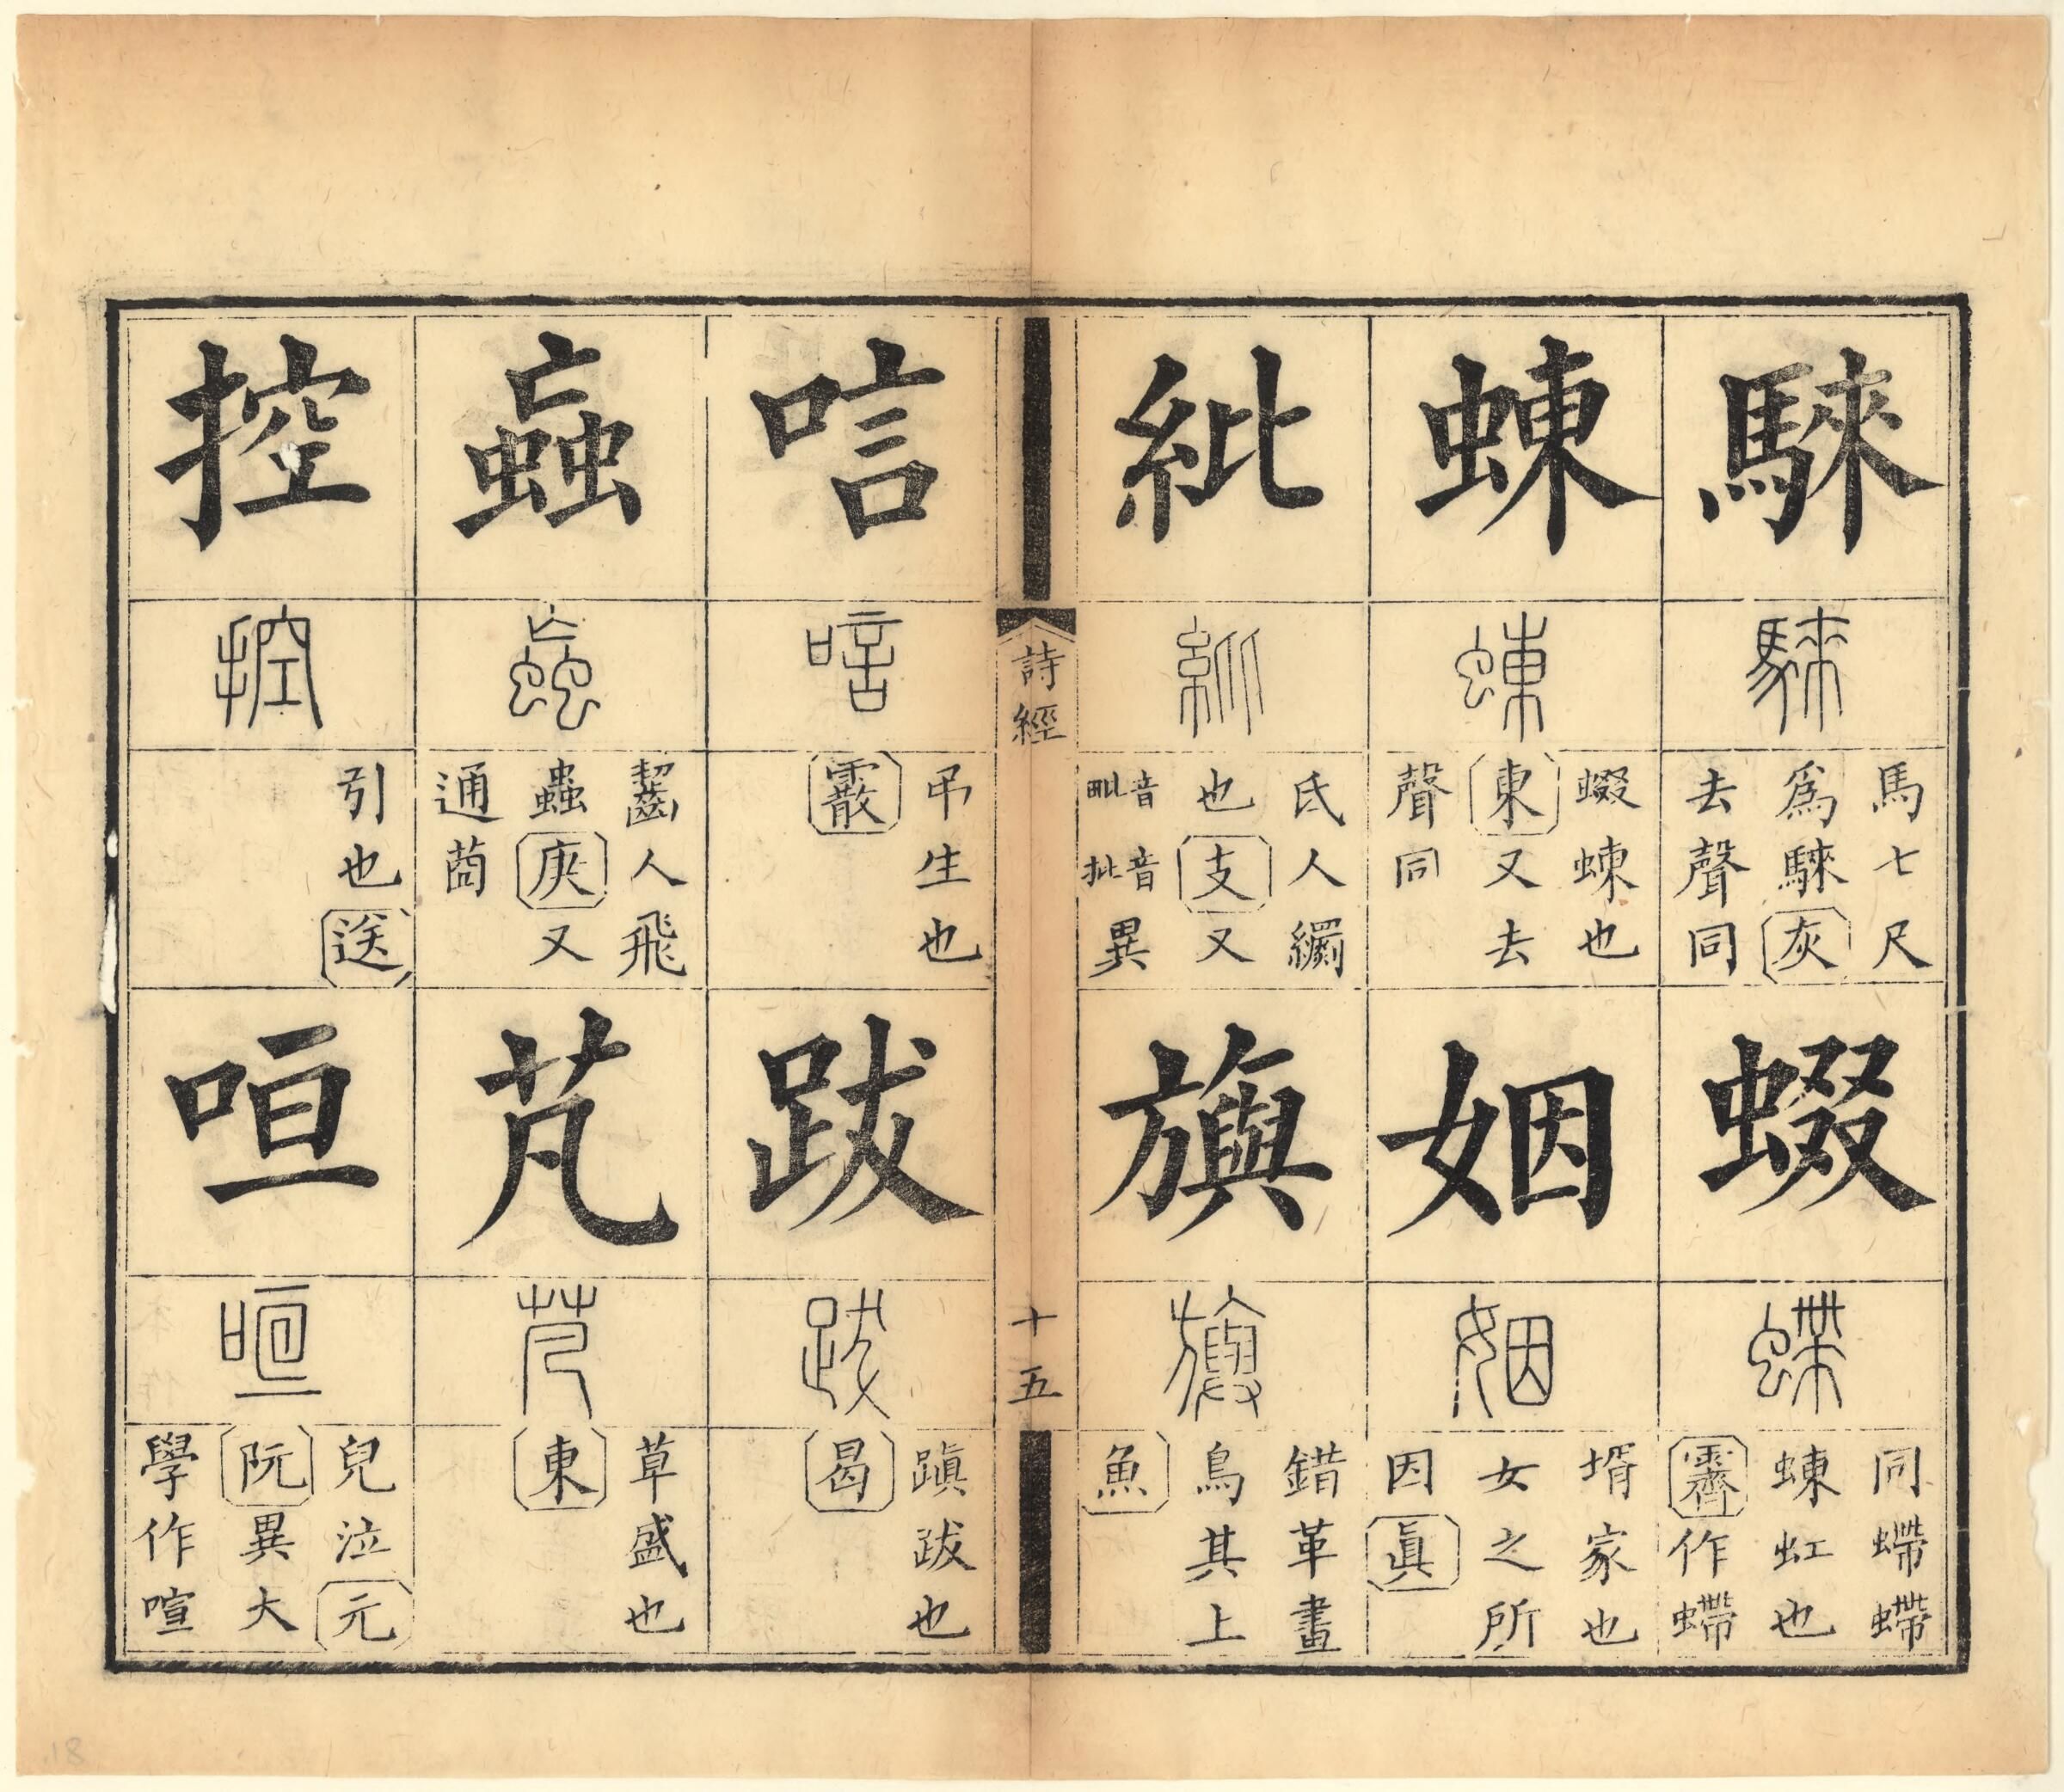 騋
騋
馬七尺
爲騋灰
去聲同
蝃
螮
同螮螮
蝀虹也
霽作螮
蝀
蝀
蝃蝀也
東又去
聲同
姻
姻
壻家也
女之所
因眞
紕
紕
氏人繝
也支又
音毗音批異
旟
旟
錯革畫
鳥其上
魚
詩經
十五
唁
唁
弔生也
霰
跋
跋
蹎跋也
曷
蝱
蝱
齧人飛
蟲庚又
通莔
芃
芃
草盛也
東
控
控
引也送
咺
咺
兒泣元
阮異大
學作喧
18